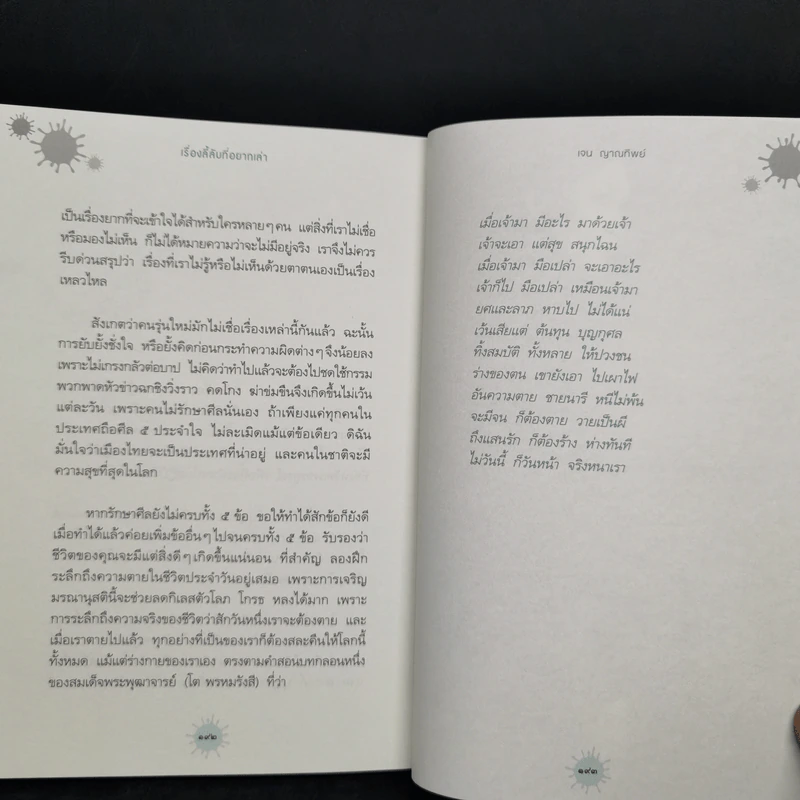 เรื่องลี้ลับที่อยากเล่า
เป็นเรื่องยากที่จะเข้าใจได้สำหรับใครหลายๆคน แต่สิ่งที่เราไม่เชื่อ
หรือมองไม่เห็น ก็ไม่ได้หมายความว่าจะไม่มีอยู่จริง เราจึงไม่ควร
รีบด่วนสรุปว่า เรื่องที่เราไม่รู้หรือไม่เห็นด้วยตาตนเองเป็นเรื่อง
เหลวไหล
สังเกตว่าคนรุ่นใหม่มักไม่เชื่อเรื่องเหล่านี้กันแล้ว ฉะนั้น
การยับยั้งชั่งใจ หรือยั้งคิดก่อนกระทำความผิดต่างๆจึงน้อยลง
เพราะไม่เกรงกลัวต่อบาป ไม่คิดว่าทำไปแล้วจะต้องไปชดใช้กรรม
พวกพาดหัวข่าวฉกชิงวิ่งราว คดโกง ฆ่าข่มขืนจึงเกิดขึ้นไม่เว้น
แต่ละวัน เพราะคนไม่รักษาศีลนั่นเอง ถ้าเพียงแค่ทุกคนใน
ประเทศถือศีล ๕ ประจำใจ ไม่ละเมิดแม้แต่ข้อเดียว ดิฉัน
มั่นใจว่าเมืองไทยจะเป็นประเทศที่น่าอยู่ และคนในชาติจะมี
ความสุขที่สุดในโลก
หากรักษาศีลยังไม่ครบทั้ง ๕ ข้อ ขอให้ทำได้สักข้อก็ยังดี
เมื่อทำได้แล้วค่อยเพิ่มข้ออื่นๆไปจนครบทั้ง ๕ ข้อ รับรองว่า
ชีวิตของคุณจะมีแต่สิ่งดีๆเกิดขึ้นแน่นอน ที่สำคัญ ลองฝึก
ระลึกถึงความตายในชีวิตประจำวันอยู่เสมอ เพราะการเจริญ
มรณานุสตินี้จะช่วยลดกิเลสตัวโลภ โกรธ หลงได้มาก เพราะ
การระลึกถึงความจริงของชีวิตว่าสักวันหนึ่งเราจะต้องตาย และ
เมื่อเราตายไปแล้ว ทุกอย่างที่เป็นของเราก็ต้องสละคืนให้โลกนี้
ทั้งหมด แม้แต่ร่างกายของเราเอง ตรงตามคำสอนบทกลอนหนึ่ง
ของสมเด็จพระพุฒาจารย์ (โต พรหมรังสี) ที่ว่า
๑๙๒
เจน ญาณทิพย์
เมื่อเจ้ามา มีอะไร มาด้วยเจ้า
เจ้าจะเอา แต่สุข สนุกไฉน
เมื่อเจ้ามา มือเปล่า จะเอาอะไร
เจ้าก็ไป มือเปล่า เหมือนเจ้ามา
ยศและลาภ หาบไป ไม่ได้แน่
เว้นเสียแต่ ต้นทุน บุญกุศล
ทิ้งสมบัติ ทั้งหลาย ให้ปวงชน
ร่างของตน เขายังเอา ไปเผาไฟ
อันความตาย ชายนารี หนีไม่พ้น
จะมีจน ก็ต้องตาย วายเป็นผี
ถึงแสนรัก ก็ต้องร้าง ห่างทันที
ไม่วันนี้ ก็วันหน้า จริงหนาเรา
๑๙๓